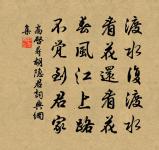 渡水復渡水
看花還看花
春風江上路
不覺到君家
高啓尋胡隱君詞典網
集